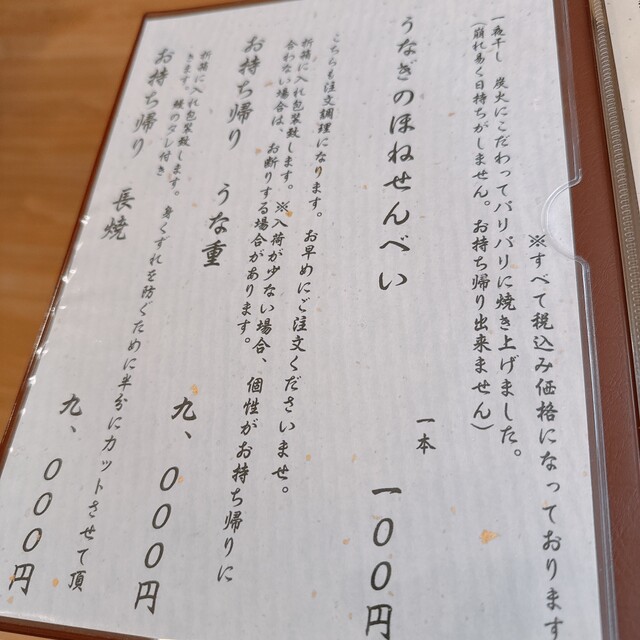 ※すべて税込み価格になっております
一夜干し 炭火にこだわってパリパリに焼き上げました。
(崩れ易く日持ちがしません。お持ち帰り出来ません)
うなぎのほねせんべい 一本 一〇〇円
こちらも注文調理になります。お早めにご注文くださいませ。
折箱に入れ包装致します。※入荷が少ない場合、個性がお持ち帰りに
合わない場合は、お断りする場合があります。
お持ち帰り うな重 九、〇〇〇円
折箱に入れ包装致します。身くずれを防ぐために半分にカットさせて頂
きます。鰻のタレ付き
お持ち帰り 長焼 九、〇〇〇円